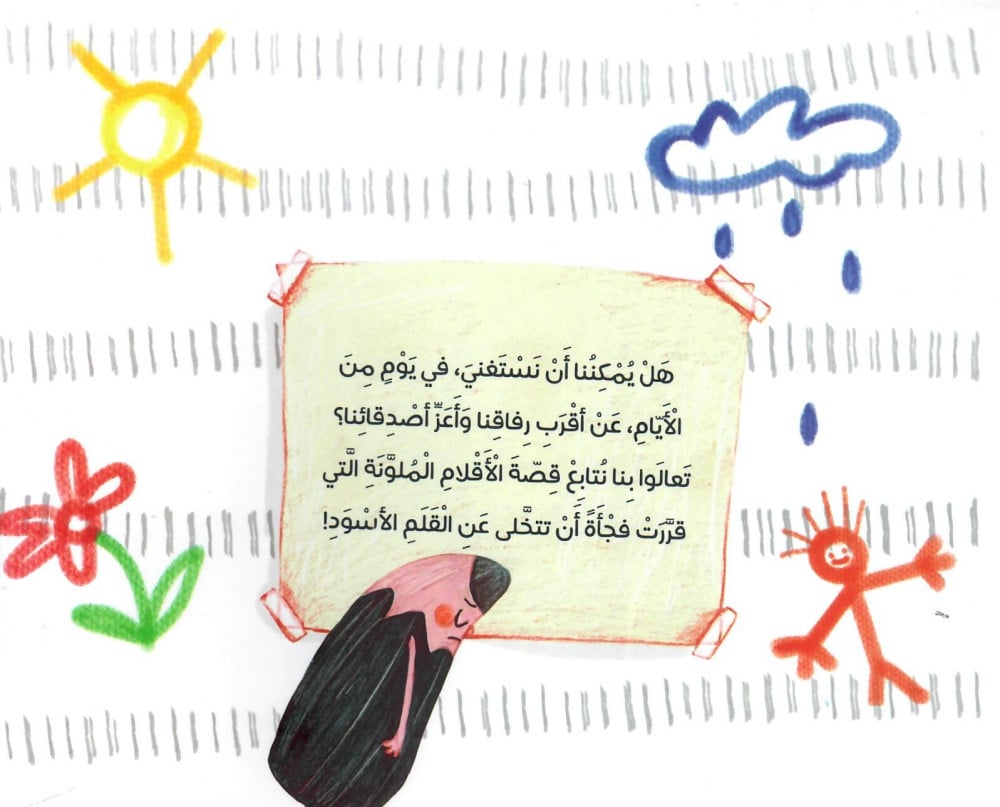 هَلْ يُمْكِنُنا أَنْ نَسْتَغنيَ، في يَوْمٍ مِنَ
الْأَيّامِ، عَنْ أقْرَبِ رِفاقِنا وَأَعَزِّ أصْدِقائِنا؟
تَعالَوا بِنا نُتابِعْ قِصّةَ الْأَقْلامِ الْمُلوَّنَةِ الَّتي
قرَّرَتْ فجْأَةً أَنْ تتخَّلى عَنِ الْقَلَمِ الأسْوَدِ!